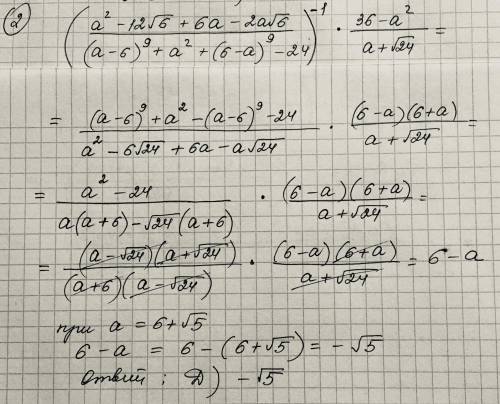 ② ( (a² - 12√6 + 6a - 2a√6) / ((a-6)⁹ + a² + (6-a)⁹ - 24) )⁻¹ · (36 - a²) / (a + √24) =
= ((a-6)⁹ + a² - (a-6)⁹ - 24) / (a² - 6√24 + 6a - a√24) · ((6-a)(6+a)) / (a + √24) =
= (a² - 24) / (a(a+6) - √24(a+6)) · ((6-a)(6+a)) / (a + √24) =
= ((a-√24)(a+√24)) / ((a+6)(a-√24)) · ((6-a)(6+a)) / (a + √24) = 6 - a
при a = 6+√5
6 - a = 6 - (6+√5) = - √5
Ответ: Д) -√5